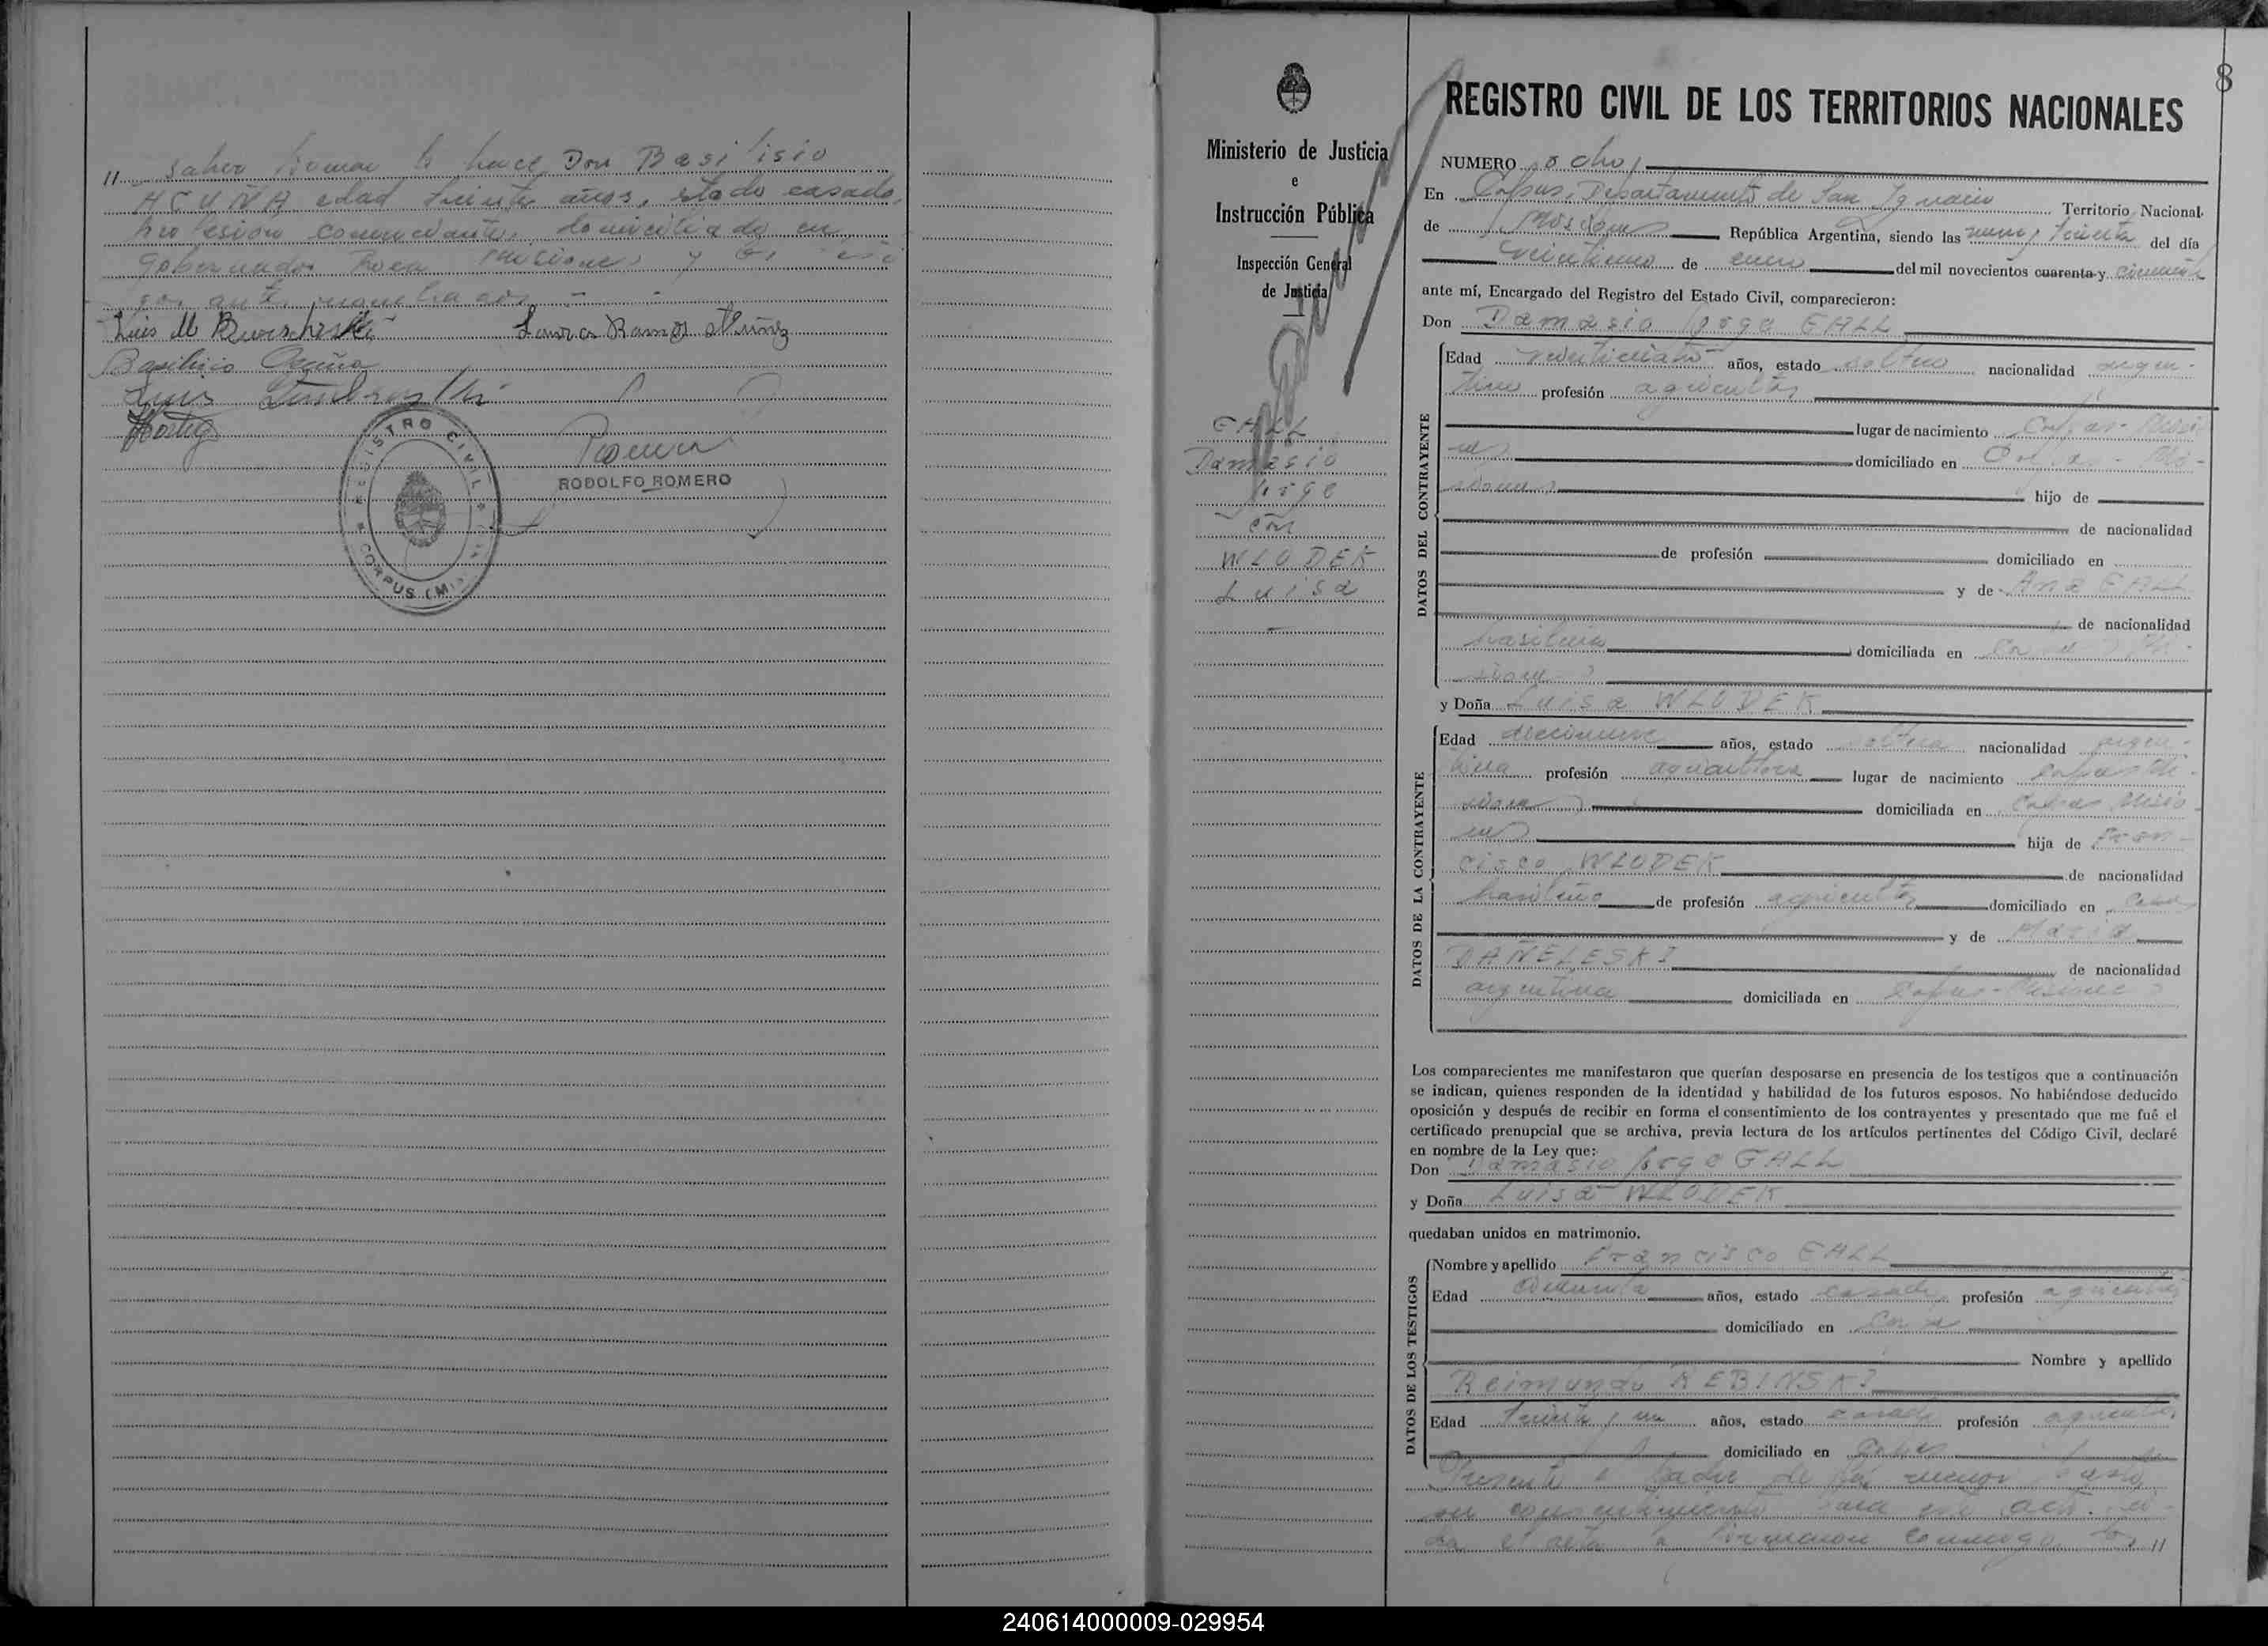 // saber firmar lo hace Don Basilisio
ACUÑA edad treinta años, estado casado,
profesión comerciante, domiciliado en
Gobernador Roca Misiones y los
Luis M Laura Ramos Nuñez
Basilicio Acuña
Luis
REGISTRO CIVIL
CORPUS (M
Romero
RODOLFO ROMERO
8
Ministerio de Justicia
e
Instrucción Pública
Inspección General
de Justicia
GALL
Damasio
Jorge
con
WLODEK
Luisa
REGISTRO CIVIL DE LOS TERRITORIOS NACIONALES
NUMERO ocho
En Corpus, Departamento de San Ignacio Territorio Nacional
de Misiones República Argentina, siendo las nueve y treinta del día
veintiuno de enero del mil novecientos cuarenta y cincuenta
ante mí, Encargado del Registro del Estado Civil, comparecieron:
Don Damasio Jorge GALL
DATOS DEL CONTRAYENTE
Edad veinticuatro años, estado soltero nacionalidad argen-
tino profesión agricultor
lugar de nacimiento Corpus - Misio
nes domiciliado en Corpus - Mi-
siones hijo de
de nacionalidad
de profesión domiciliado en
y de Ana GALL
de nacionalidad
brasileña domiciliada en Corpus Mi-
siones
y Doña Luisa WLODEK
DATOS DE LA CONTRAYENTE
Edad diecinueve años, estado soltera nacionalidad argen-
tina profesión agricultora lugar de nacimiento Corpus Mi-
siones domiciliada en Corpus Misio-
nes hija de Fran-
cisco WLODEK de nacionalidad
brasileño de profesión agricultor domiciliado en Corpus
y de María
DAÑELESKI de nacionalidad
argentina domiciliada en Corpus - Misiones
Los comparecientes me manifestaron que querían desposarse en presencia de los testigos que a continuación
se indican, quienes responden de la identidad y habilidad de los futuros esposos. No habiéndose deducido
oposición y después de recibir en forma el consentimiento de los contrayentes y presentado que me fué el
certificado prenupcial que se archiva, previa lectura de los artículos pertinentes del Código Civil, declaré
en nombre de la Ley que:
Don Damasio Jorge GALL
y Doña Luisa WLODEK
quedaban unidos en matrimonio.
DATOS DE LOS TESTIGOS
Nombre y apellido Francisco GALL
Edad cincuenta años, estado casado profesión agricultor
domiciliado en Corpus
Nombre y apellido
Reimundo REBINSKI
Edad treinta y un años, estado casado profesión agricultor
domiciliado en Corpus
Presente el padre de la menor
su consentimiento para este acto.
el acta la firmaron conmigo los //
240614000009-029954